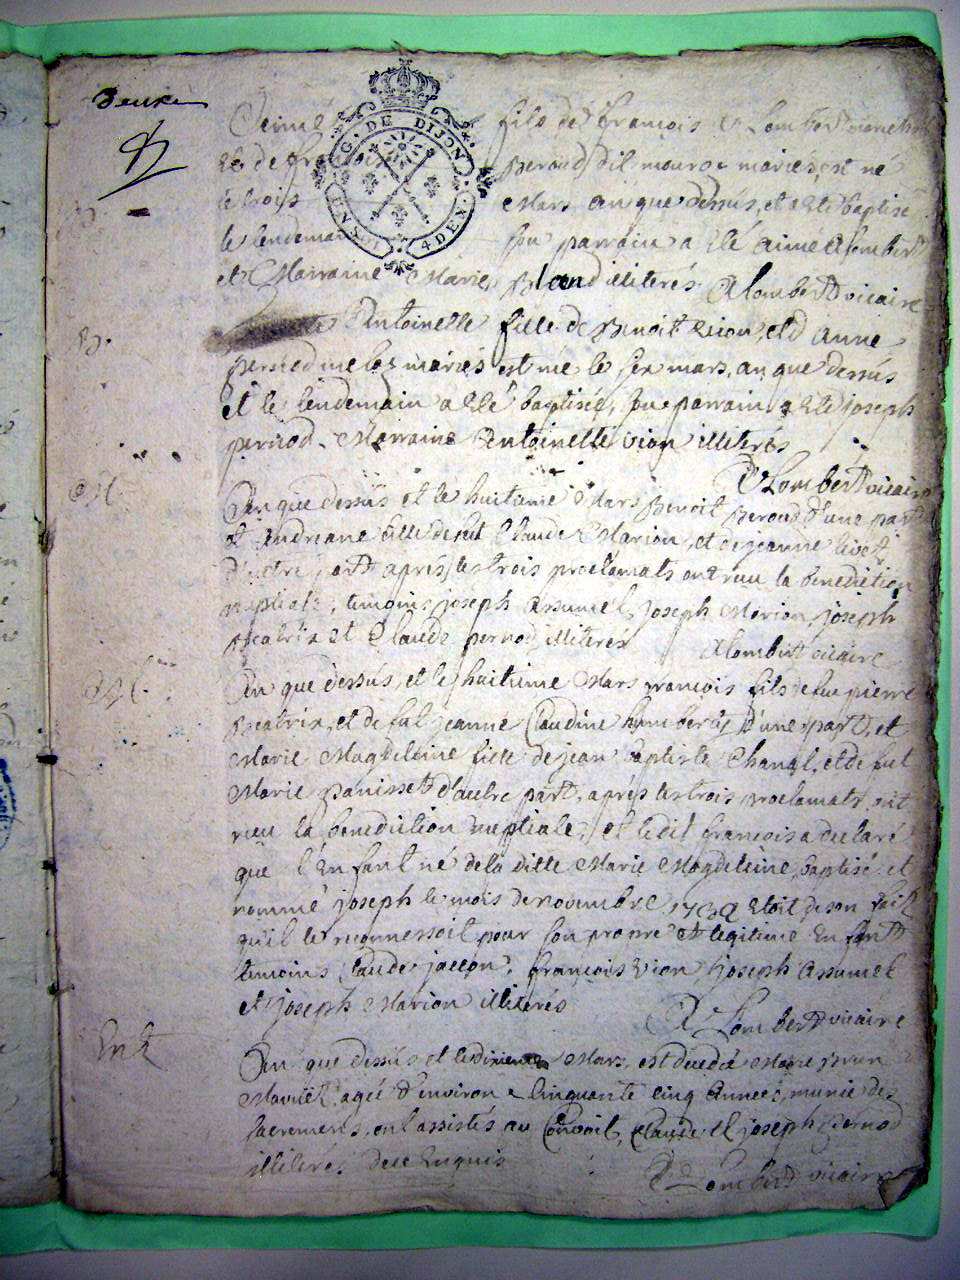 Deuxe
G. DE DIJON
4 DEN.
Aimé fils de françois Lombert
et de perond dit mariés, est né
le trois Mars an que dessus, et a été baptisé
le lendemain son parrain a été aimé Lombert
et Marraine Marie illiterés A Lombert vicaire
Antoinette fille de Benoit vion, et d anne
mariés est née le six mars, an que dessus
et le lendemain a été baptisée, son parrain a été joseph
pernod. Marraine Antoinette vion illiterés
A Lombert vicaire
B.
M.
An que dessus et le huitieme Mars Benoit perond d'une part
et andreane fille de fut Claude Marion, et de jeanne
d'autre part après les trois proclamats ont reçu la benediction
nuptiale, temoins joseph assumel, joseph Marion, joseph
Beatrix et Claude pernod, illiterés A Lombert vicaire
An que dessus, et le huitieme Mars françois fils de fut pierre
Beatrix, et de fut jeanne Claudine humbert d'une part, et
Marie Magdeleine fille de jean Baptiste Changl, et de fut
Marie panisset d'autre part, après les trois proclamats, ont
reçu la benediction nuptiale, et ledit françois a declaré
que l'enfant né de la ditte Marie Magdeleine, baptisé et
nommé joseph le mois de novembre étoit de son fait
qu'il le reconnessoit pour son propre et legitime enfant
temoins Claude jallon, françois vion joseph assumel
et joseph Marion illiterés
A Lombert vicaire
Ent
An que dessus et le dixieme Mars, est decedé
agée d'environ cinquante cinq années, munie de
sacremens, ont assistés au Convoit, Claude et joseph pernod
illiterés de ce enquis
A Lombert vicaire